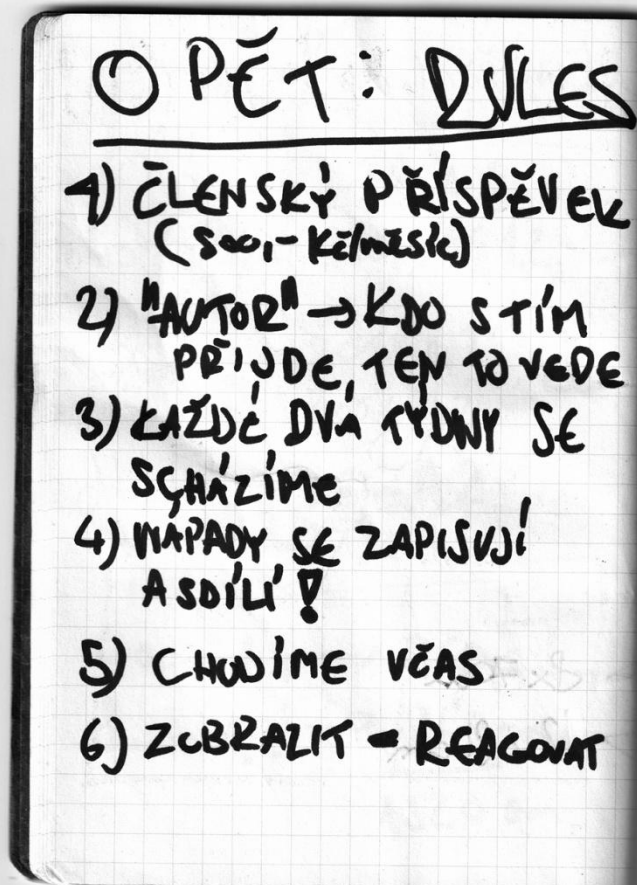 OPĚT: RULES
1) ČLENSKÝ PŘÍSPĚVEK
(500,- Kč/měsíc)
2) "AUTOR" → KDO S TÍM
PŘIJDE, TEN TO VEDE
3) KAŽDÉ DVA TÝDNY SE
SCHÁZÍME
4) NÁPADY SE ZAPISUJÍ
A SDÍLÍ!
5) CHODÍME VČAS
6) ZOBRAZIT = REAGOVAT